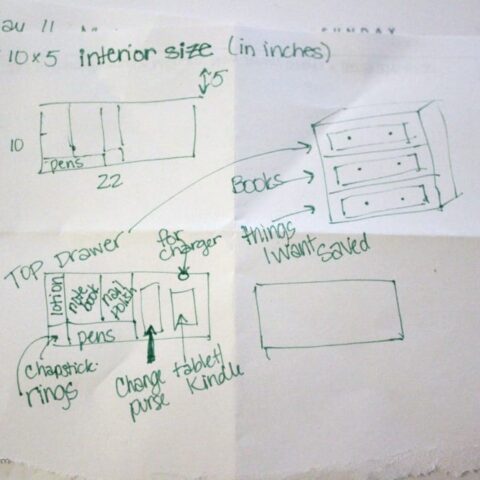 11
10x5 interior size (in inches)
5
10
pens
22
Books
things
I want saved
TOP DRAWER
for
charger
lotion
note
book
nail
polish
pens
Chapstick
rings
Change
purse
tablet/
Kindle